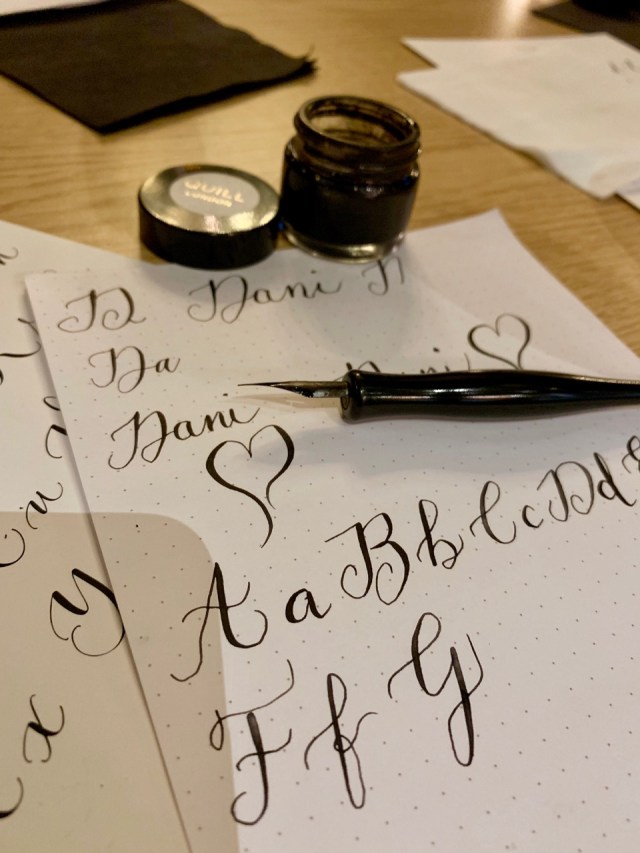 QUILL
LONDON
D Dani
Da Dani
Dani
A a B b C c D d
F f G
y
x